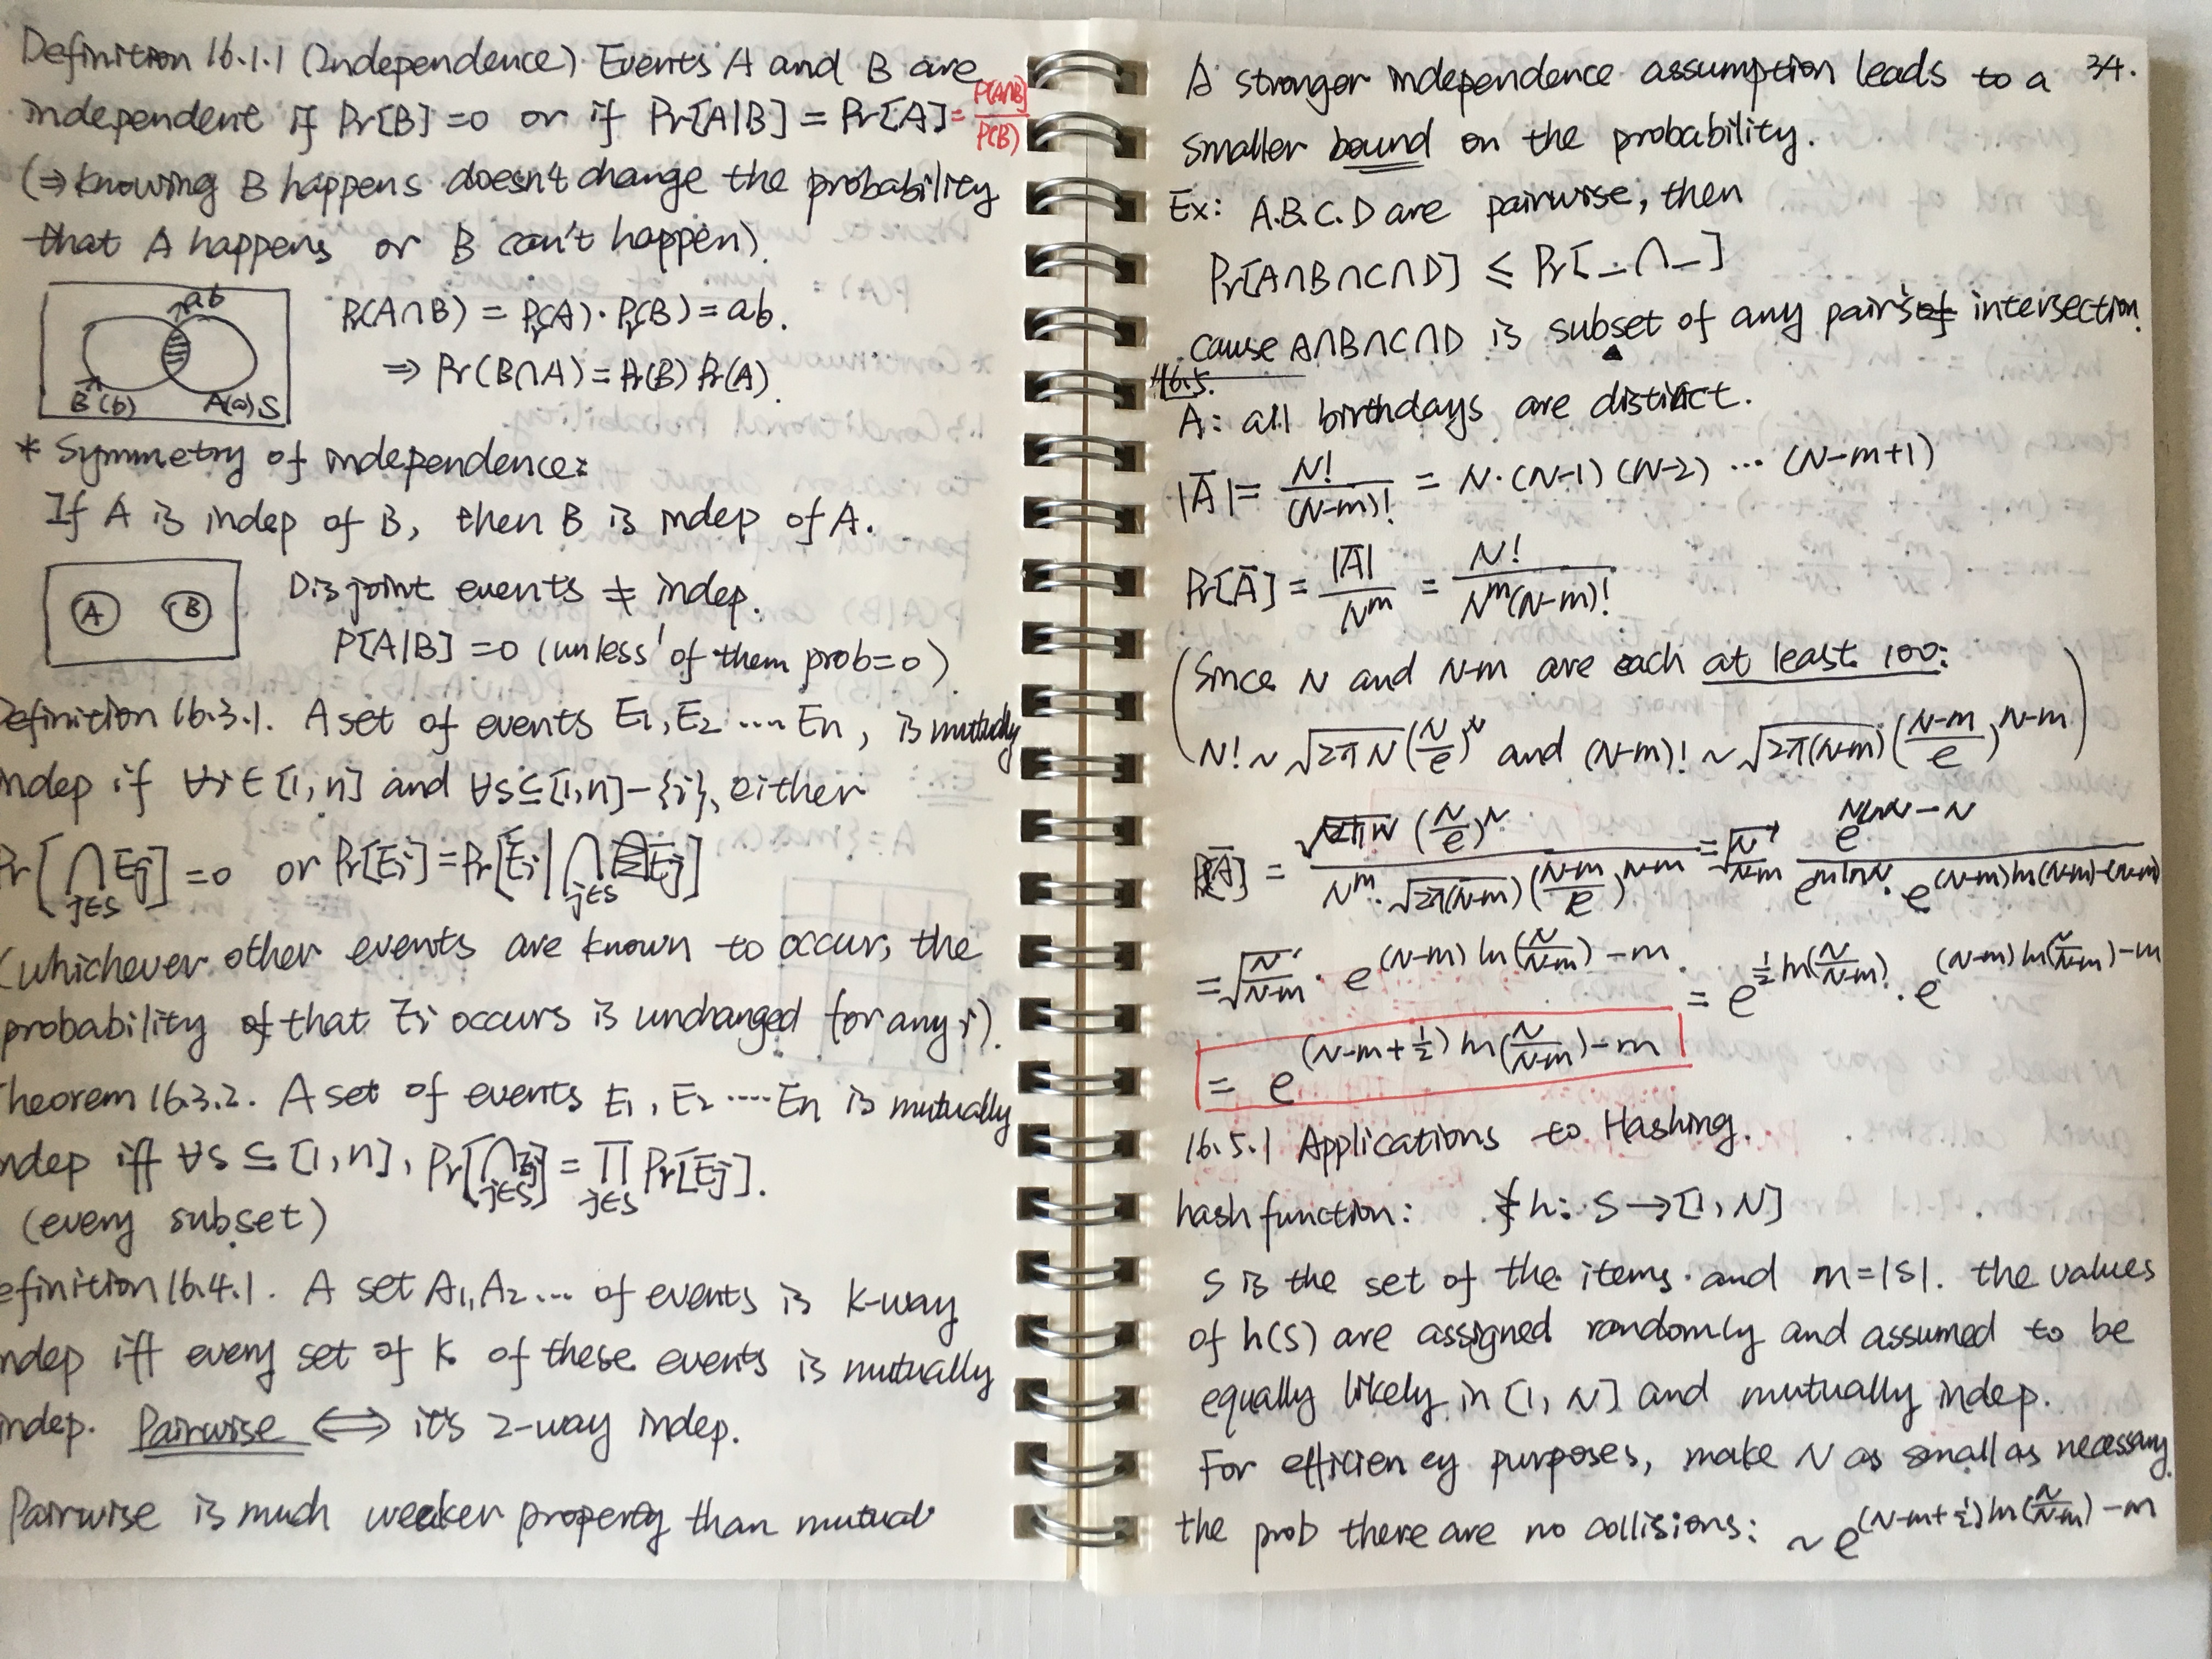 Definition 16.1.1 (Independence). Events A and B are
independent if Pr[B]=0 or if Pr[A|B] = Pr[A] = P(A∩B)/P(B)
(⇒ knowing B happens doesn't change the probability
that A happens or B can't happen).
ab
B(b) A(a) S
Pr(A∩B) = Pr(A)·Pr(B) = ab.
⇒ Pr(B∩A) = Pr(B) Pr(A).
* Symmetry of independence:
If A is indep of B, then B is indep of A.
A B
Disjoint events ≠ indep.
P[A|B] = 0 (unless 1 of them prob=0).
Definition 16.3.1. A set of events E1, E2 .... En, is mutually
indep if ∀i∈[1,n] and ∀S⊆[1,n]-{i}, either
Pr[⋂_{j∈S} Ej] = 0 or Pr[Ei] = Pr[Ei | ⋂_{j∈S} Ej]
(whichever other events are known to occur, the
probability of that Ei occurs is unchanged for any i).
Theorem 16.3.2. A set of events E1, E2 .... En is mutually
indep iff ∀S⊆[1,n], Pr[⋂_{j∈S} Ej] = ∏_{j∈S} Pr[Ej].
(every subset)
efinition 16.4.1. A set A1, A2 ... of events is k-way
ndep iff every set of k of these events is mutually
indep. Pairwise ⟺ it's 2-way indep.
Pairwise is much weaker property than mutual
34.
A stronger independence assumption leads to a
smaller bound on the probability.
Ex: A.B.C.D are pairwise, then
Pr[A∩B∩C∩D] ≤ Pr[_∩_]
cause A∩B∩C∩D is subset of any pair's of intersection.
16.5.
A: all birthdays are distinct.
|Ā| = N!/(N-m)! = N·(N-1)(N-2) ... (N-m+1)
Pr[Ā] = |Ā|/N^m = N!/(N^m(N-m)!)
(Since N and N-m are each at least 100:
N! ~ √(2πN) (N/e)^N and (N-m)! ~ √(2π(N-m)) ((N-m)/e)^(N-m))
Pr[Ā] = √(2πN) (N/e)^N / (N^m·√(2π(N-m)) ((N-m)/e)^(N-m)) = √(N/(N-m)) e^(N ln N - N) / (e^(m ln N)·e^((N-m)ln(N-m)-(N-m)))
= √(N/(N-m)) · e^((N-m) ln(N/(N-m)) - m) = e^(½ ln(N/(N-m))) · e^((N-m) ln(N/(N-m)) - m)
= e^((N-m+½) ln(N/(N-m)) - m)
16.5.1 Applications to Hashing.
hash function: h: S→[1, N]
S is the set of the items and m=|S|. the values
of h(S) are assigned randomly and assumed to be
equally likely in [1, N] and mutually indep.
For efficiency purposes, make N as small as necessary.
the prob there are no collisions: ~ e^((N-m+½) ln(N/(N-m)) - m)